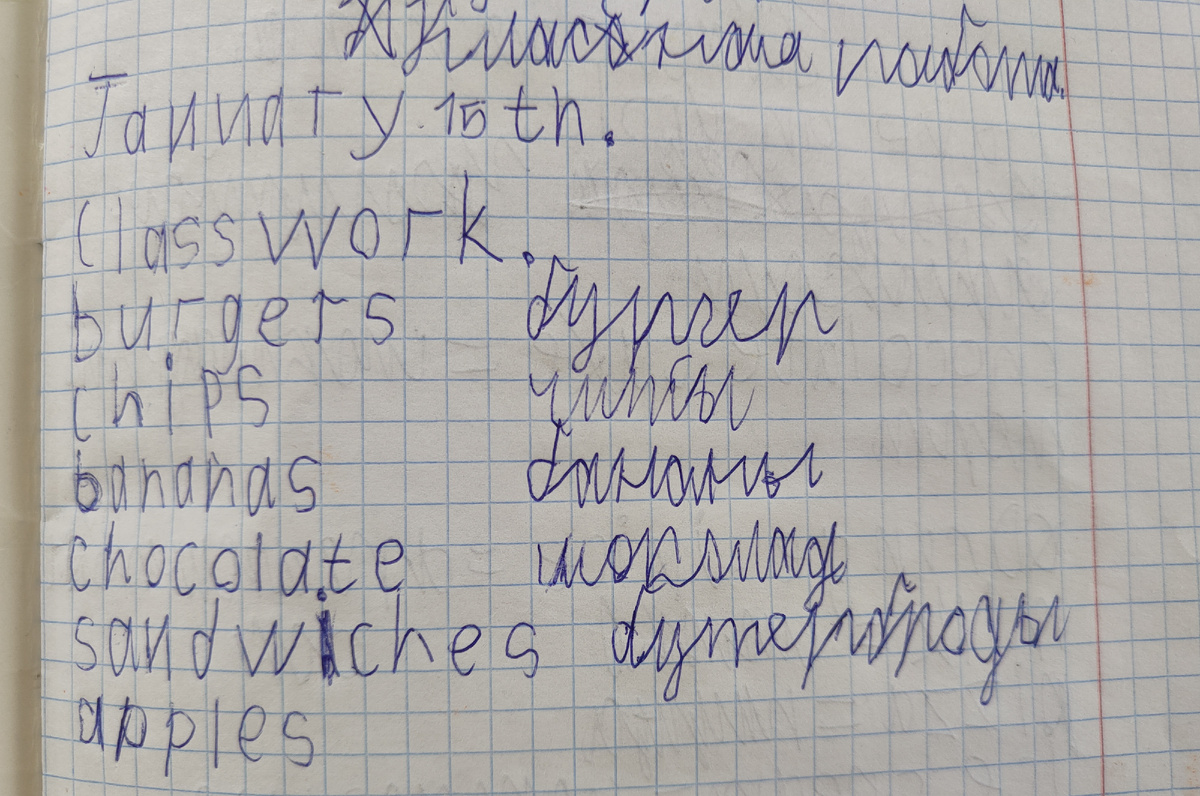 Классная работа.
January 15th.
Classwork.
burgers бургер
chips чипсы
bananas бананы
chocolate шоколад
sandwiches бутерброды
apples